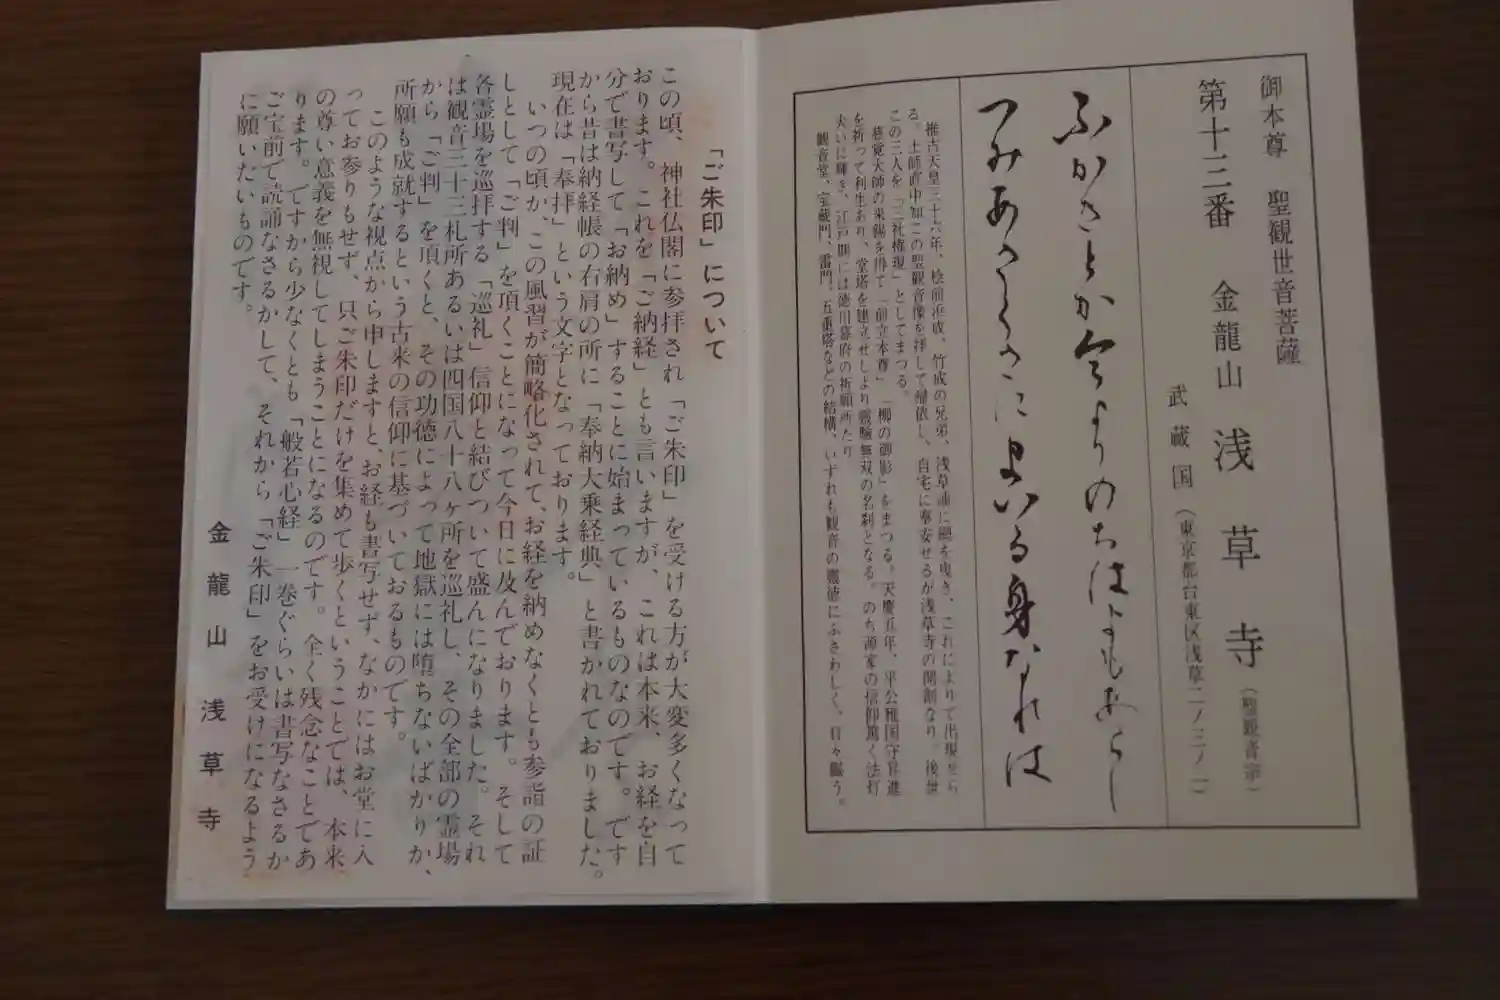 御本尊 聖観世音菩薩
第十三番 金龍山 浅草寺（聖観音宗）
武蔵国（東京都台東区浅草二ノ三ノ一）
ふかきとか今よりのちはよもあらし
つみあさくさにまいる身なれは
推古天皇三十六年、桧前浜成、竹成の兄弟、浅草浦に網を曳き、これによりて出現せら
る。土師直中知この聖観音像を拝して帰依し、自宅に奉安せるが浅草寺の開創なり。後世
この三人を「三社権現」としてまつる。
慈覚大師の来錫を得て「前立本尊」「柳の御影」をまつる。天慶五年、平公雅国守昇進
を祈って利生あり、堂塔を建立せしより霊験無双の名刹となる。のち源家の信仰篤く法灯
大いに輝き、江戸期には徳川幕府の祈願所たり。
観音堂、宝蔵門、雷門、五重塔などの結構、いずれも観音の霊徳にふさわしく、日々賑う。
「ご朱印」について
この頃、神社仏閣に参拝され「ご朱印」を受ける方が大変多くなって
おります。これを「ご納経」とも言いますが、これは本来、お経を自
分で書写して「お納め」することに始まっているものなのです。です
から昔は納経帳の右肩の所に「奉納大乗経典」と書かれておりました。
現在は「奉拝」という文字となっております。
いつの頃か、この風習が簡略化されて、お経を納めなくとも参詣の証
しとして「ご判」を頂くことになって今日に及んでおります。そして
各霊場を巡拝する「巡礼」信仰と結びついて盛んになりました。それ
は観音三十三札所あるいは四国八十八ヶ所を巡礼し、その全部の霊場
から「ご判」を頂くと、その功徳によって地獄には堕ちないばかりか、
所願も成就するという古来の信仰に基づいておるものです。
このような視点から申しますと、お経も書写せず、なかにはお堂に入
ってお参りもせず、只ご朱印だけを集めて歩くということでは、本来
の尊い意義を無視してしまうことになるのです。全く残念なことであ
ります。ですから少なくとも「般若心経」一巻ぐらいは書写なさるか
ご宝前で読誦なさるかして、それから「ご朱印」をお受けになるよう
に願いたいものです。
金龍山 浅草寺